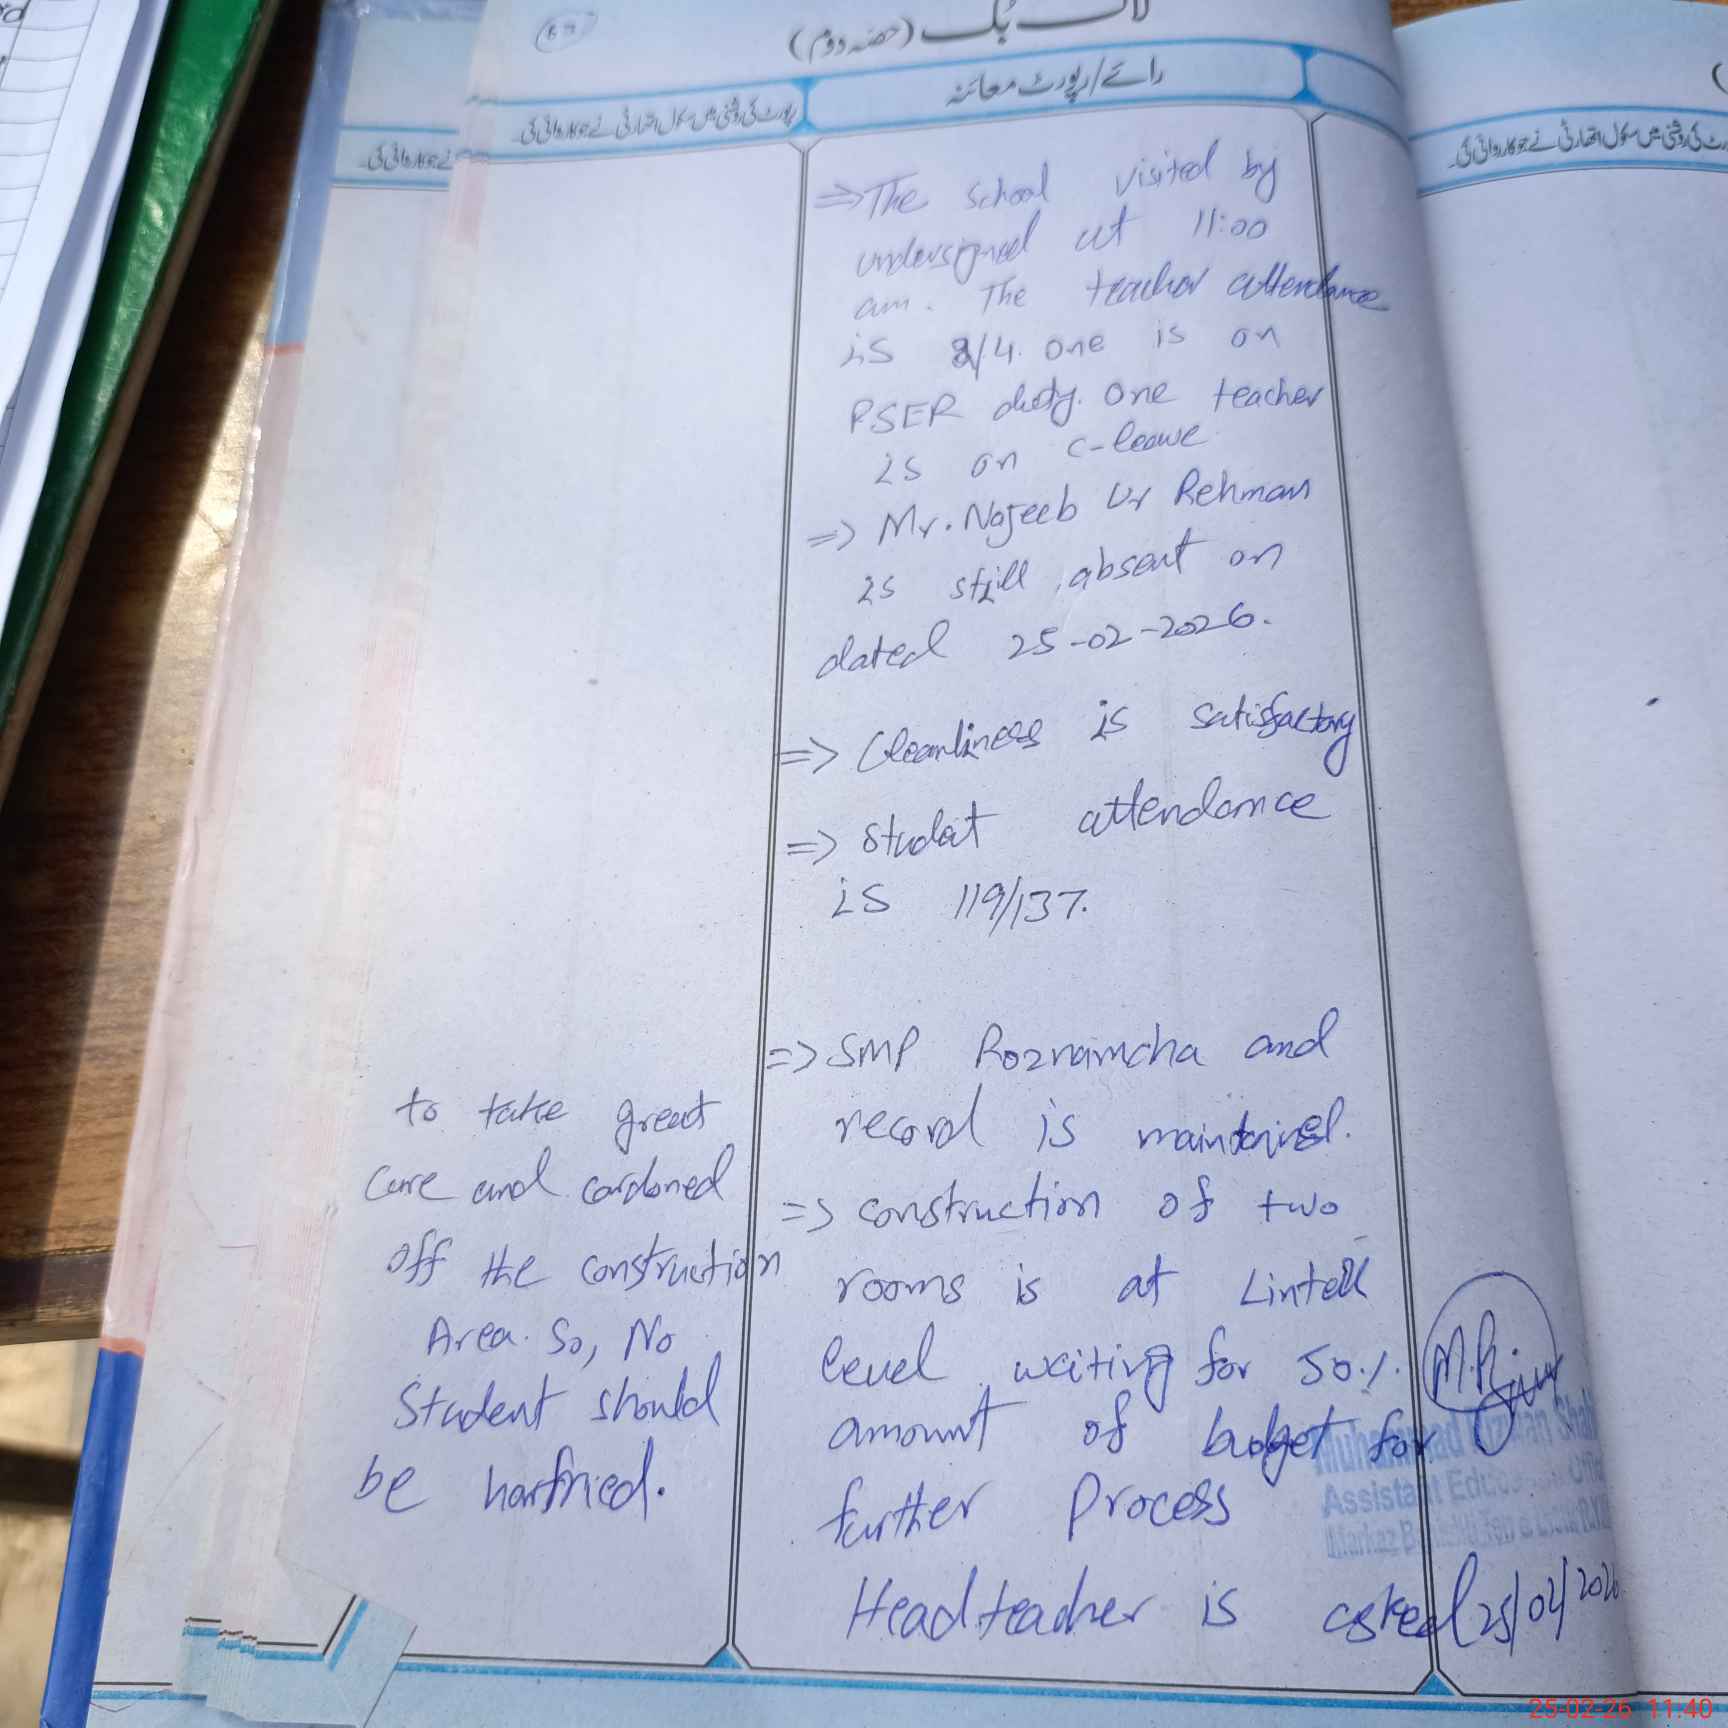 لاگ بُک (حصّہ دوم)
رائے/رپورٹ معائنہ
رپورٹ کی روشنی میں سکول اتھارٹی نے جو کاروائی کی۔
نے جو کاروائی کی۔
رپورٹ کی روشنی میں سکول اتھارٹی نے جو کاروائی کی۔
=> The school visited by
undersigned at 11:00
am. The teacher attendance
is 2/4. one is on
PSER duty. One teacher
is on c-leave
=> Mr. Najeeb Ur Rehman
is still absent on
dated 25-02-2026.
=> Cleanliness is satisfactory
=> Studat attendance
is 119/137.
=> SMP Roznamcha and
record is maintained.
=> construction of two
rooms is at Lintell
level waiting for 50%
amount of budget for
further Process
Headteacher is asked
to take great
care and cordoned
off the construction
Area. So, No
Student should
be harmed.
Muhammad Rizwan Shah
Assistant Education
25/02/2026
25-02-26 11:40